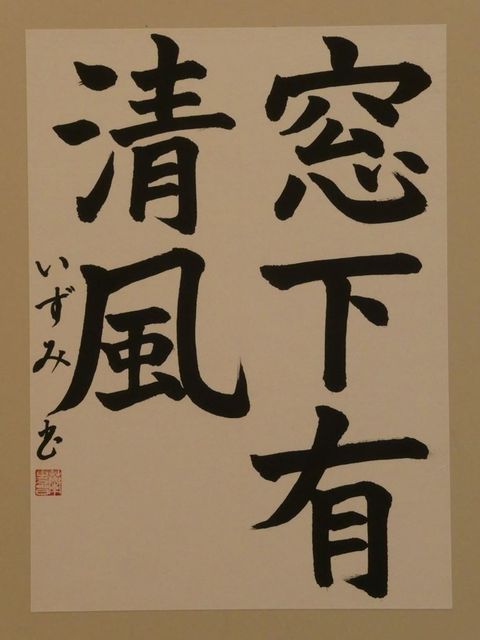 窓下有
清風
いずみ書